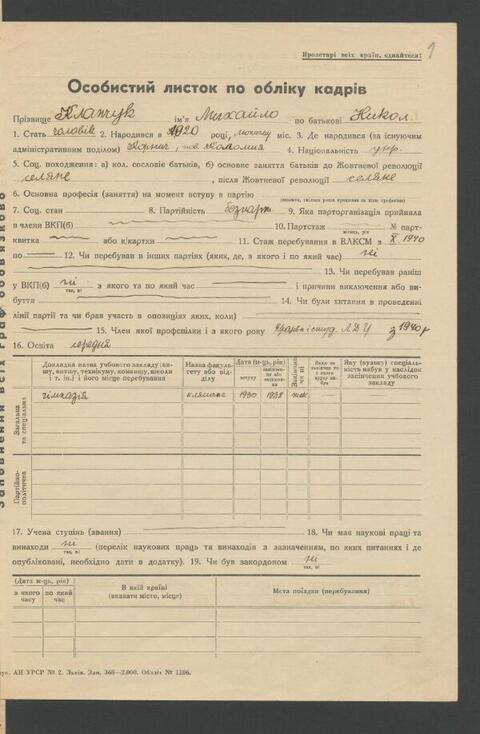 1
Пролетарі всіх країн, єднайтеся!
Особистий листок по обліку кадрів
Прізвище Клапчук ім'я Михайло по батькові Никол.
1. Стать чоловік 2. Народився в 1920 році, міс. 3. Де народився (за існуючим
адміністративним поділом) 4. Національність укр.
5. Соц. походження: а) кол. сословіє батьків, б) основне заняття батьків до Жовтневої революції
селяне, після Жовтневої революції селяне
6. Основна професія (заняття) на момент вступу в партію
7. Соц. стан 8. Партійність безпарт. 9. Яка парторганізація прийняла
в члени ВКП(б) 10. Партстаж № парт-
місяць, рік
квитка або к/картки 11. Стаж перебування в ВЛКСМ з X 1940
по 12. Чи перебував в інших партіях (яких, де, з якого і по який час) ні
13. Чи перебував раніш
у ВКП(б) ні з якого та по який час і причини виключення або ви-
так, ні
буття 14. Чи були хитання в проведенні
лінії партії та чи брав участь в опозиціях яких, коли)
15. Член якої профспілки і з якого року студ. ЛДУ з 1940 р
16. Освіта середня
Докладна назва учбового закладу (ви-
шу, витшу, технікуму, комвишу, школи
і т. ін.) і його місце перебування
Назва факуль-
тету або від-
ділу
Дата (м-ць, рік)
вступу
Закінчив чи ні
Яку (вузьку) спеціаль-
ність набув у наслідок
закінчення учбового
закладу
Загальна та спеціальна
гімназія 1930 1938 так
Партійно-політична
17. Учена ступінь (звання) 18. Чи має наукові праці та
винаходи ні (перелік наукових праць та винаходів з зазначенням, по яких питаннях і де
так, ні
опубліковані, необхідно дати в додатку). 19. Чи був закордоном ні
так, ні
(Дата м-ць, рік)
з якого часу
по який час
В якій країні
(вказати місто, місце)
Мета поїздки (перебування)
Заповнення всіх граф обов'язково
АН УРСР № 2. Львів. Зам. 368—2.000. Обліт № 1196.